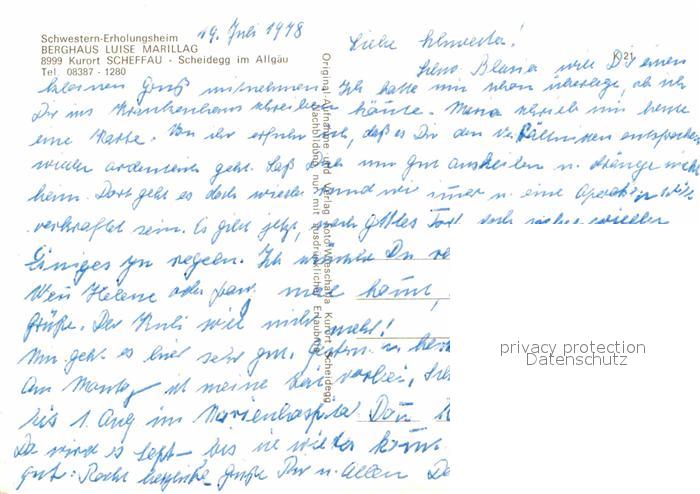 19. Juli 1978
Schwestern-Erholungsheim
BERGHAUS LUISE MARILLAG
8999 Kurort SCHEFFAU - Scheidegg im Allgäu
Tel. 08387 - 1280
K 21
Liebe Schwester!
will Dir einen
kleinen Gruß mitnehmen. Ich hatte mir schon überlegt, ob ich
Dir ins Krankenhaus schreiben könnte. schrieb mir heute
eine Karte. Von ihr erfuhr ich, daß es Dir den Verhältnissen entsprechend
wieder ordentlich geht. Laß Dich nur gut ausheilen u. dränge nicht
heim. Dort geht es doch wieder rund wie immer u. eine Operation will
verkraftet sein. Es gibt jetzt, nach Tod doch sicher wieder
Einiges zu regeln. Ich wünsche Du
Wenn Helene oder kommt,
Grüße. Der Kuli will nicht mehr!
Mir geht es hier sehr gut. Gestern
Am Montag ist meine Zeit vorbei,
bis 1. Aug im Marienhospital. Dann
Da wird es Sept. bis wir wieder
gut: Recht herzliche Grüße Dir u. Allen
Original-Aufnahme und Verlag Foto Wieschalla Kurort Scheidegg
Nachbildung nur mit ausdrücklicher Erlaubnis
privacy protection
Datenschutz